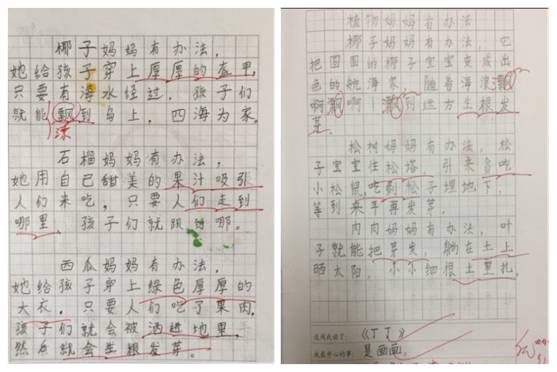 椰子妈妈有办法，
她给孩子穿上厚厚的盔甲，
只要有海水经过，孩子们
就能飘到岛上，四海为家。
漂
石榴妈妈有办法，
她用自己甜美的果汁吸引
人们来吃，只要人们走到
哪里 孩子们就跟到哪。
西瓜妈妈有办法，
她给孩子穿上绿色厚厚的
大衣，只要人们吃了果肉，
孩子们就会被洒进地里，
然后就会生根发芽。
植物妈妈有办法
椰子妈妈有办法，它
把圆圆的椰子宝宝变成出
色的航海家，随着海浪漂
啊漂啊！漂到远方生根发
芽。
松树妈妈有办法，松
子宝宝住松塔，引来贪吃
小松鼠，吃剩松子埋地下，
等到来年再发芽。
肉肉妈妈有办法，叶
子就能把芽发，躺在土上
晒太阳，小小细根土里扎。
《丁丁》
是画画。